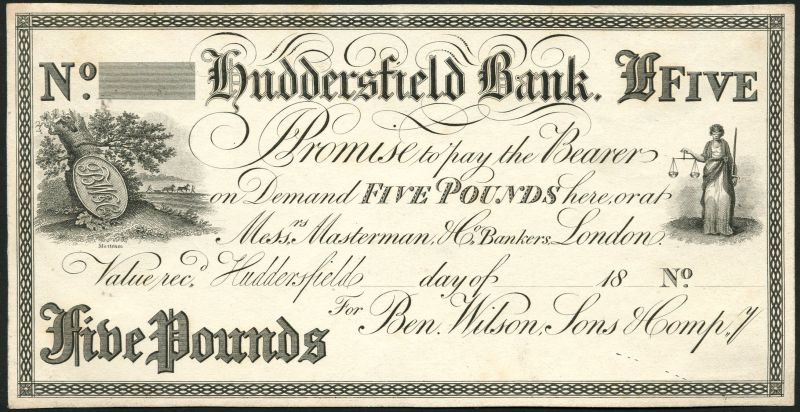 No. Huddersfield Bank. £FIVE
I Promise to pay the Bearer
on Demand FIVE POUNDS here, or at
Messrs. Masterman, & Co. Bankers, London.
Value recd. Huddersfield day of 18 No
For Ben. Wilson, Sons & Comp.y
Five Pounds